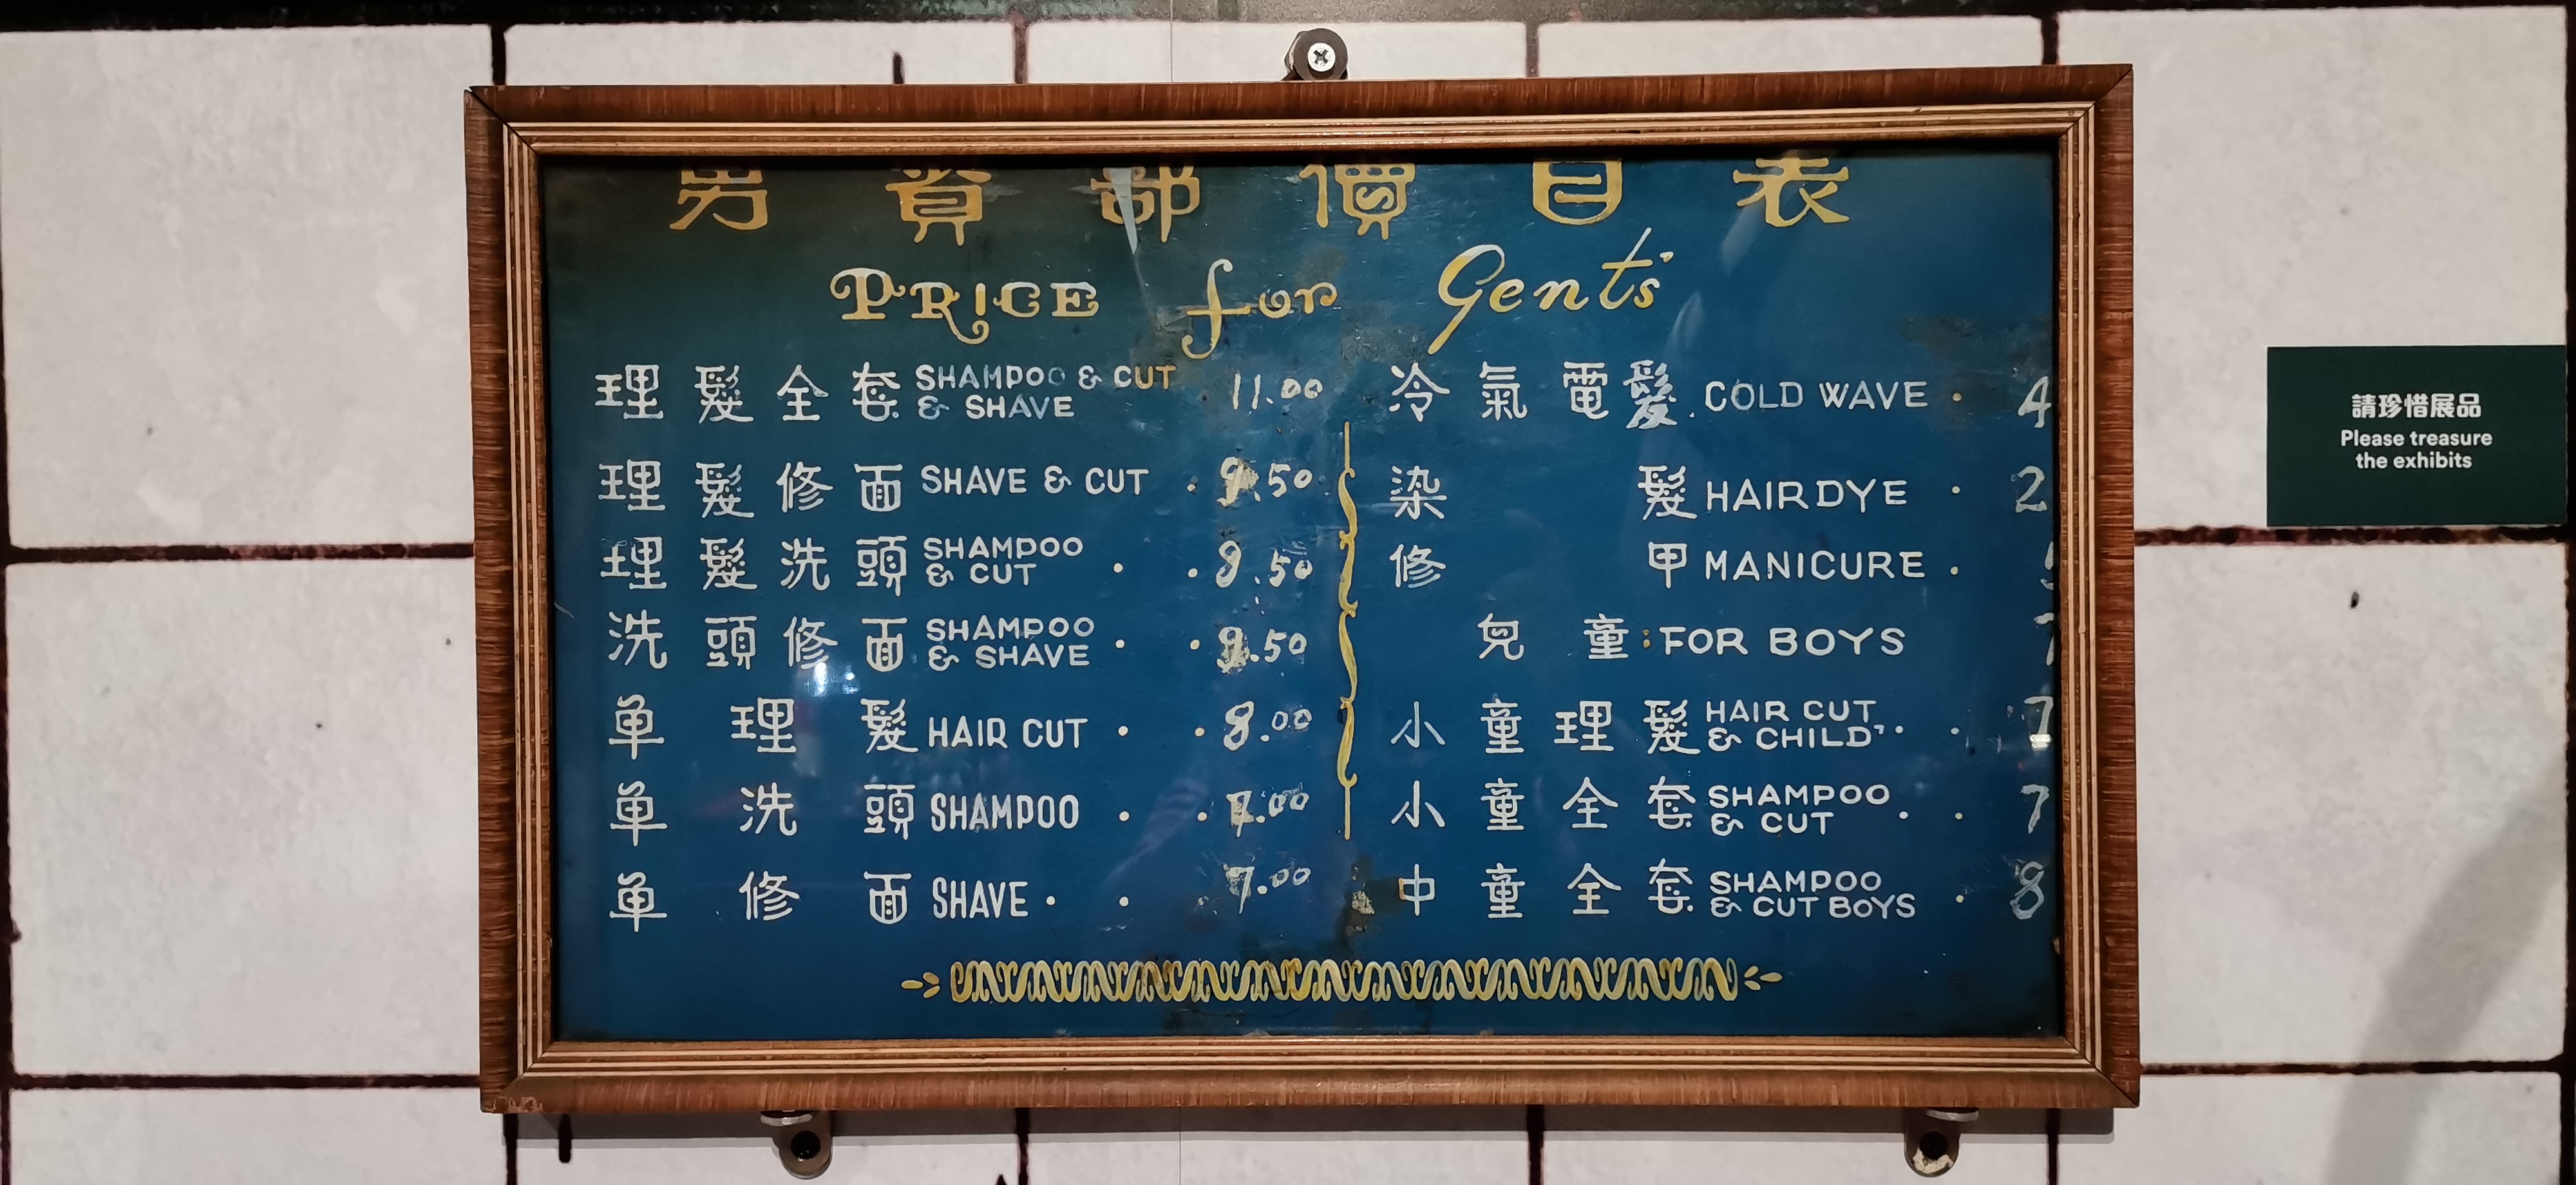 男賓部價目表
PRICE for Gent's
理髮全套 SHAMPOO & CUT & SHAVE 11.00
理髮修面 SHAVE & CUT . 9.50
理髮洗頭 SHAMPOO & CUT . . 9.50
洗頭修面 SHAMPOO & SHAVE . . 9.50
単理髮 HAIR CUT . . 8.00
単洗頭 SHAMPOO . . 7.00
単修面 SHAVE . . 7.00
冷氣電髮 COLD WAVE . 4
染髮 HAIR DYE . 2
修甲 MANICURE .
兒童: FOR BOYS
小童理髮 HAIR CUT & CHILD' . . 7
小童全套 SHAMPOO & CUT . . 7
中童全套 SHAMPOO & CUT BOYS . 8
請珍惜展品
Please treasure
the exhibits